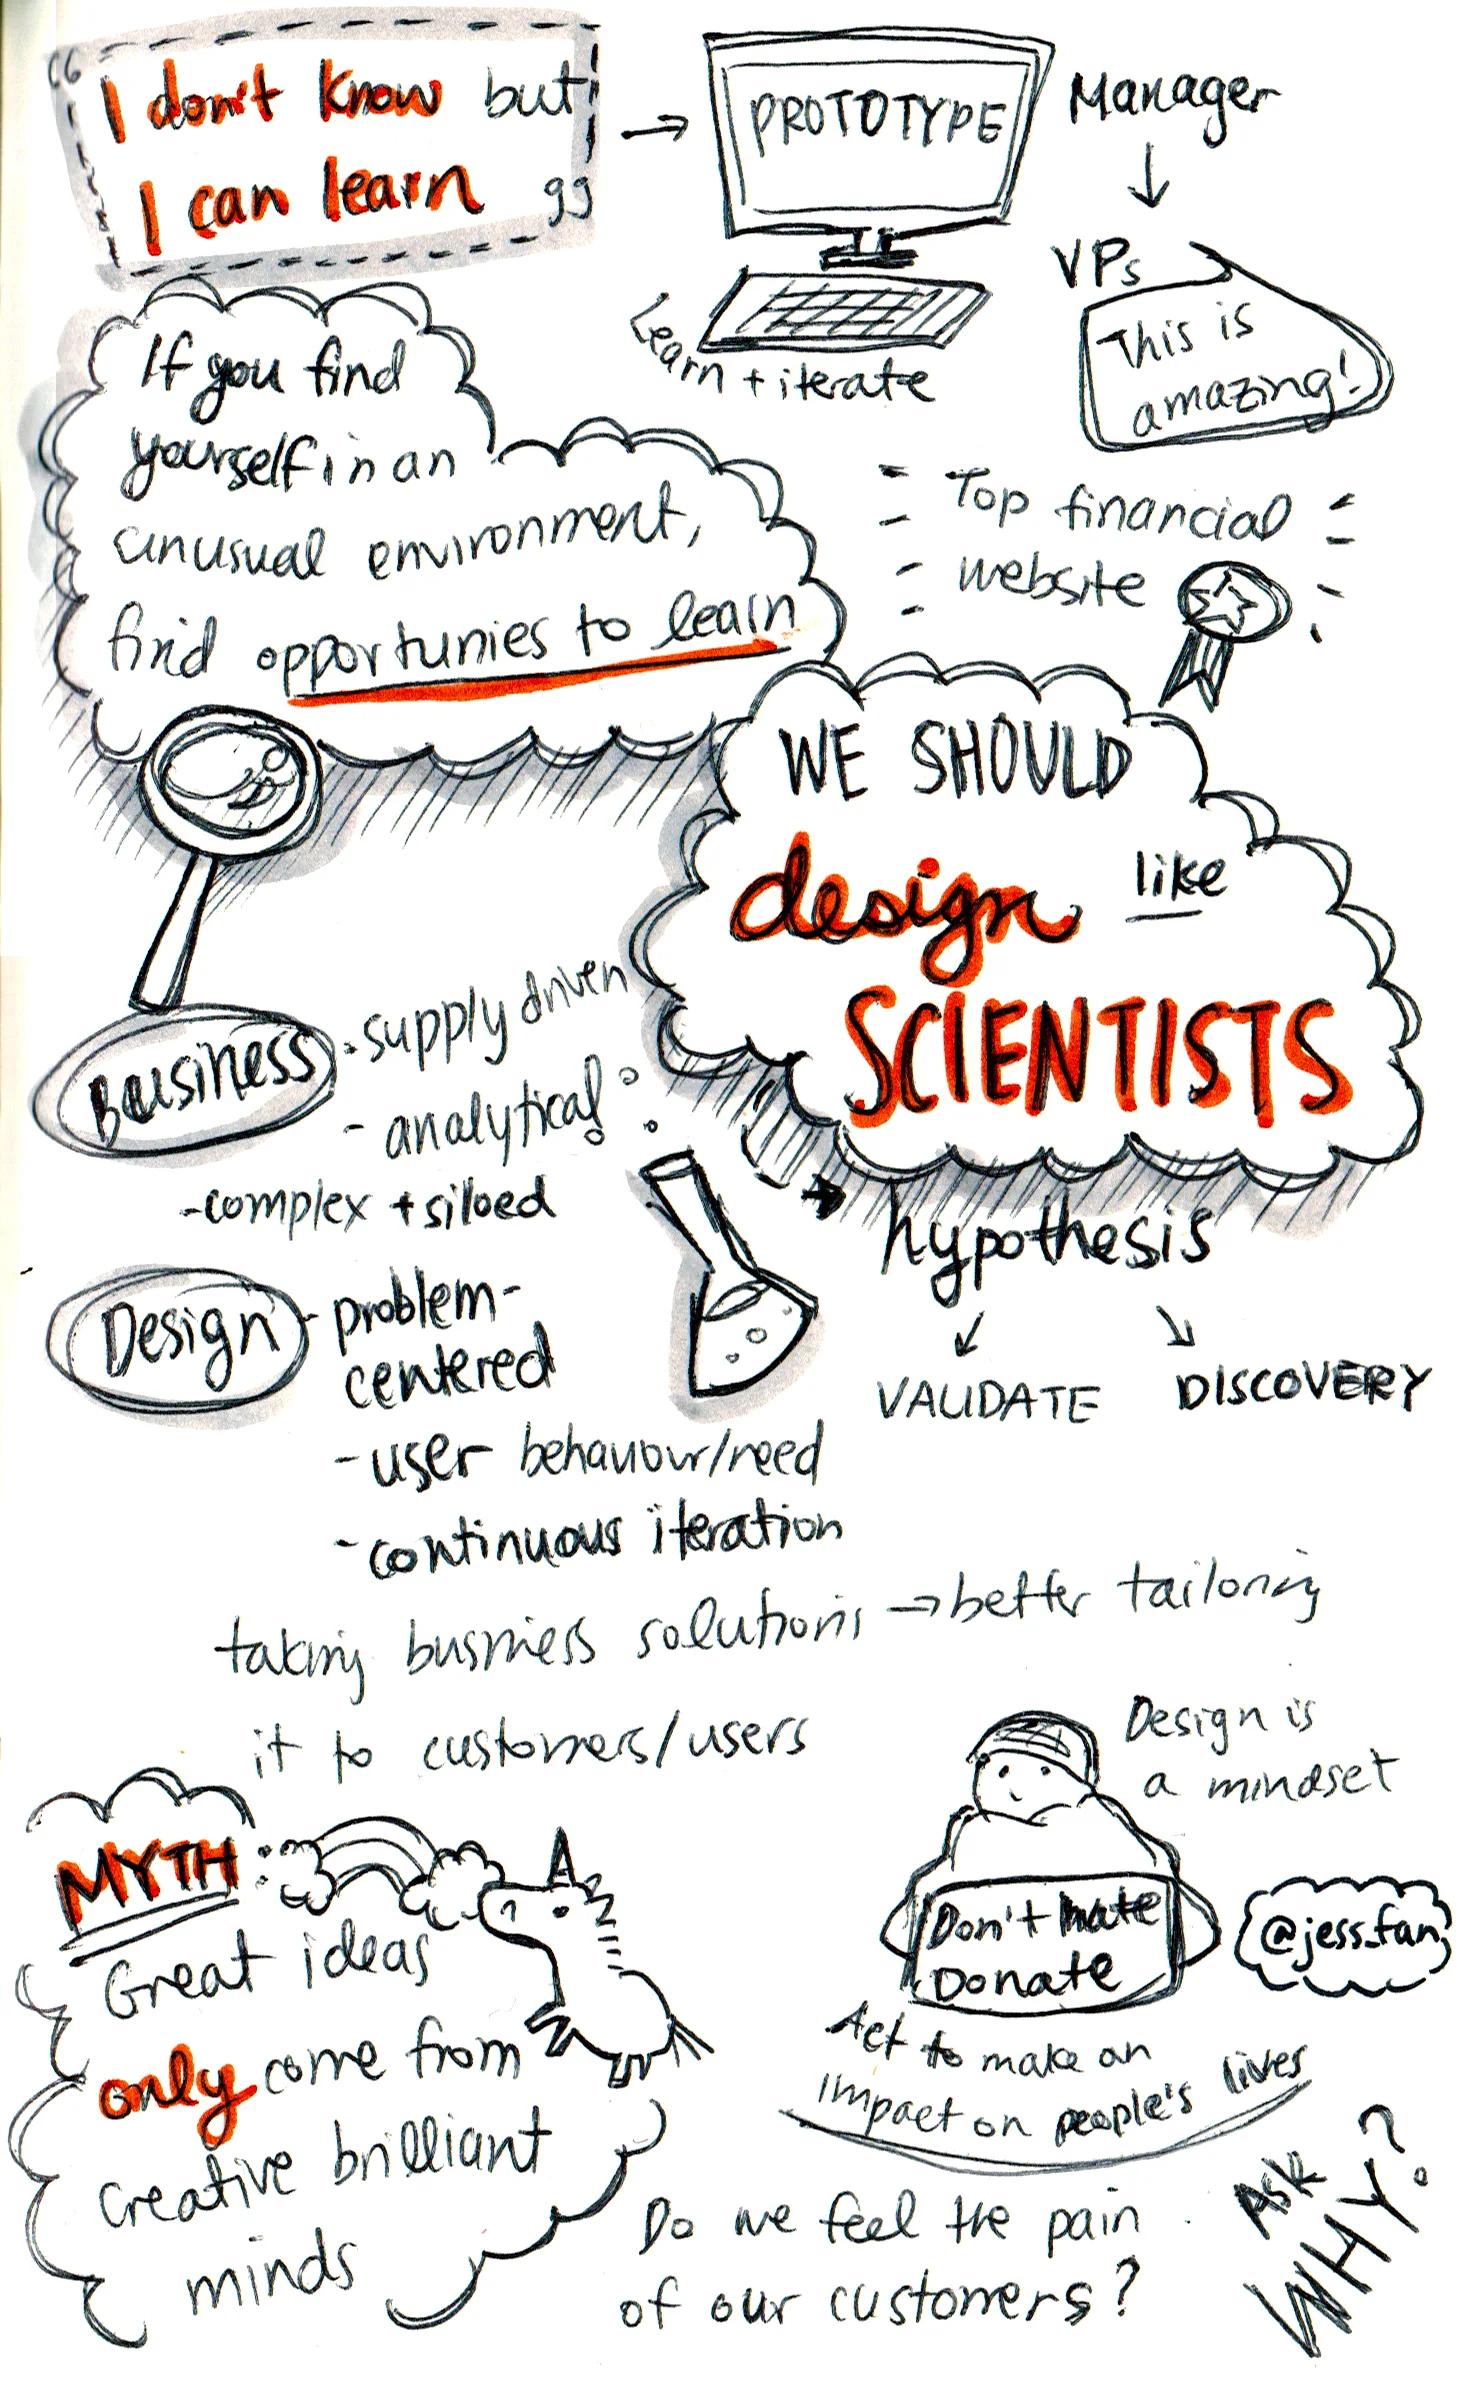 “ I don't know but
I can learn ”
→ PROTOTYPE
Learn + iterate
Manager
↓
VPs
This is
amazing!
If you find
yourself in an
unusual environment,
find opportunies to learn
Top financial
website
WE SHOULD
design like
SCIENTISTS
Business - supply driven
- analytical
- complex + siloed
→ hypothesis
↙ ↘
VALIDATE DISCOVERY
Design - problem-
centered
- user behaviour/need
- continuous iteration
taking business solutions → better tailoring
it to customers/users
MYTH:
Great ideas
only come from
creative brilliant
minds
Design is
a mindset
Don't hate
Donate
@jess_fan
Act to make an
impact on people's lives
Do we feel the pain
of our customers?
ASK
WHY?